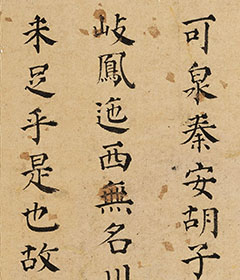 可泉秦安胡子
岐鳳迤西無名川
未足乎是也故